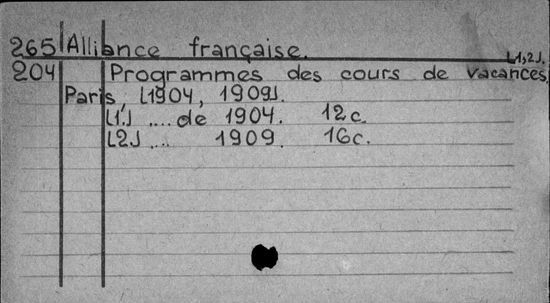 265 Alliance française.
L1,2J.
204 Programmes des cours de vacances,
Paris, [1904, 1909].
[1.] .... de 1904. 12c.
[2] .... 1909. 16c.